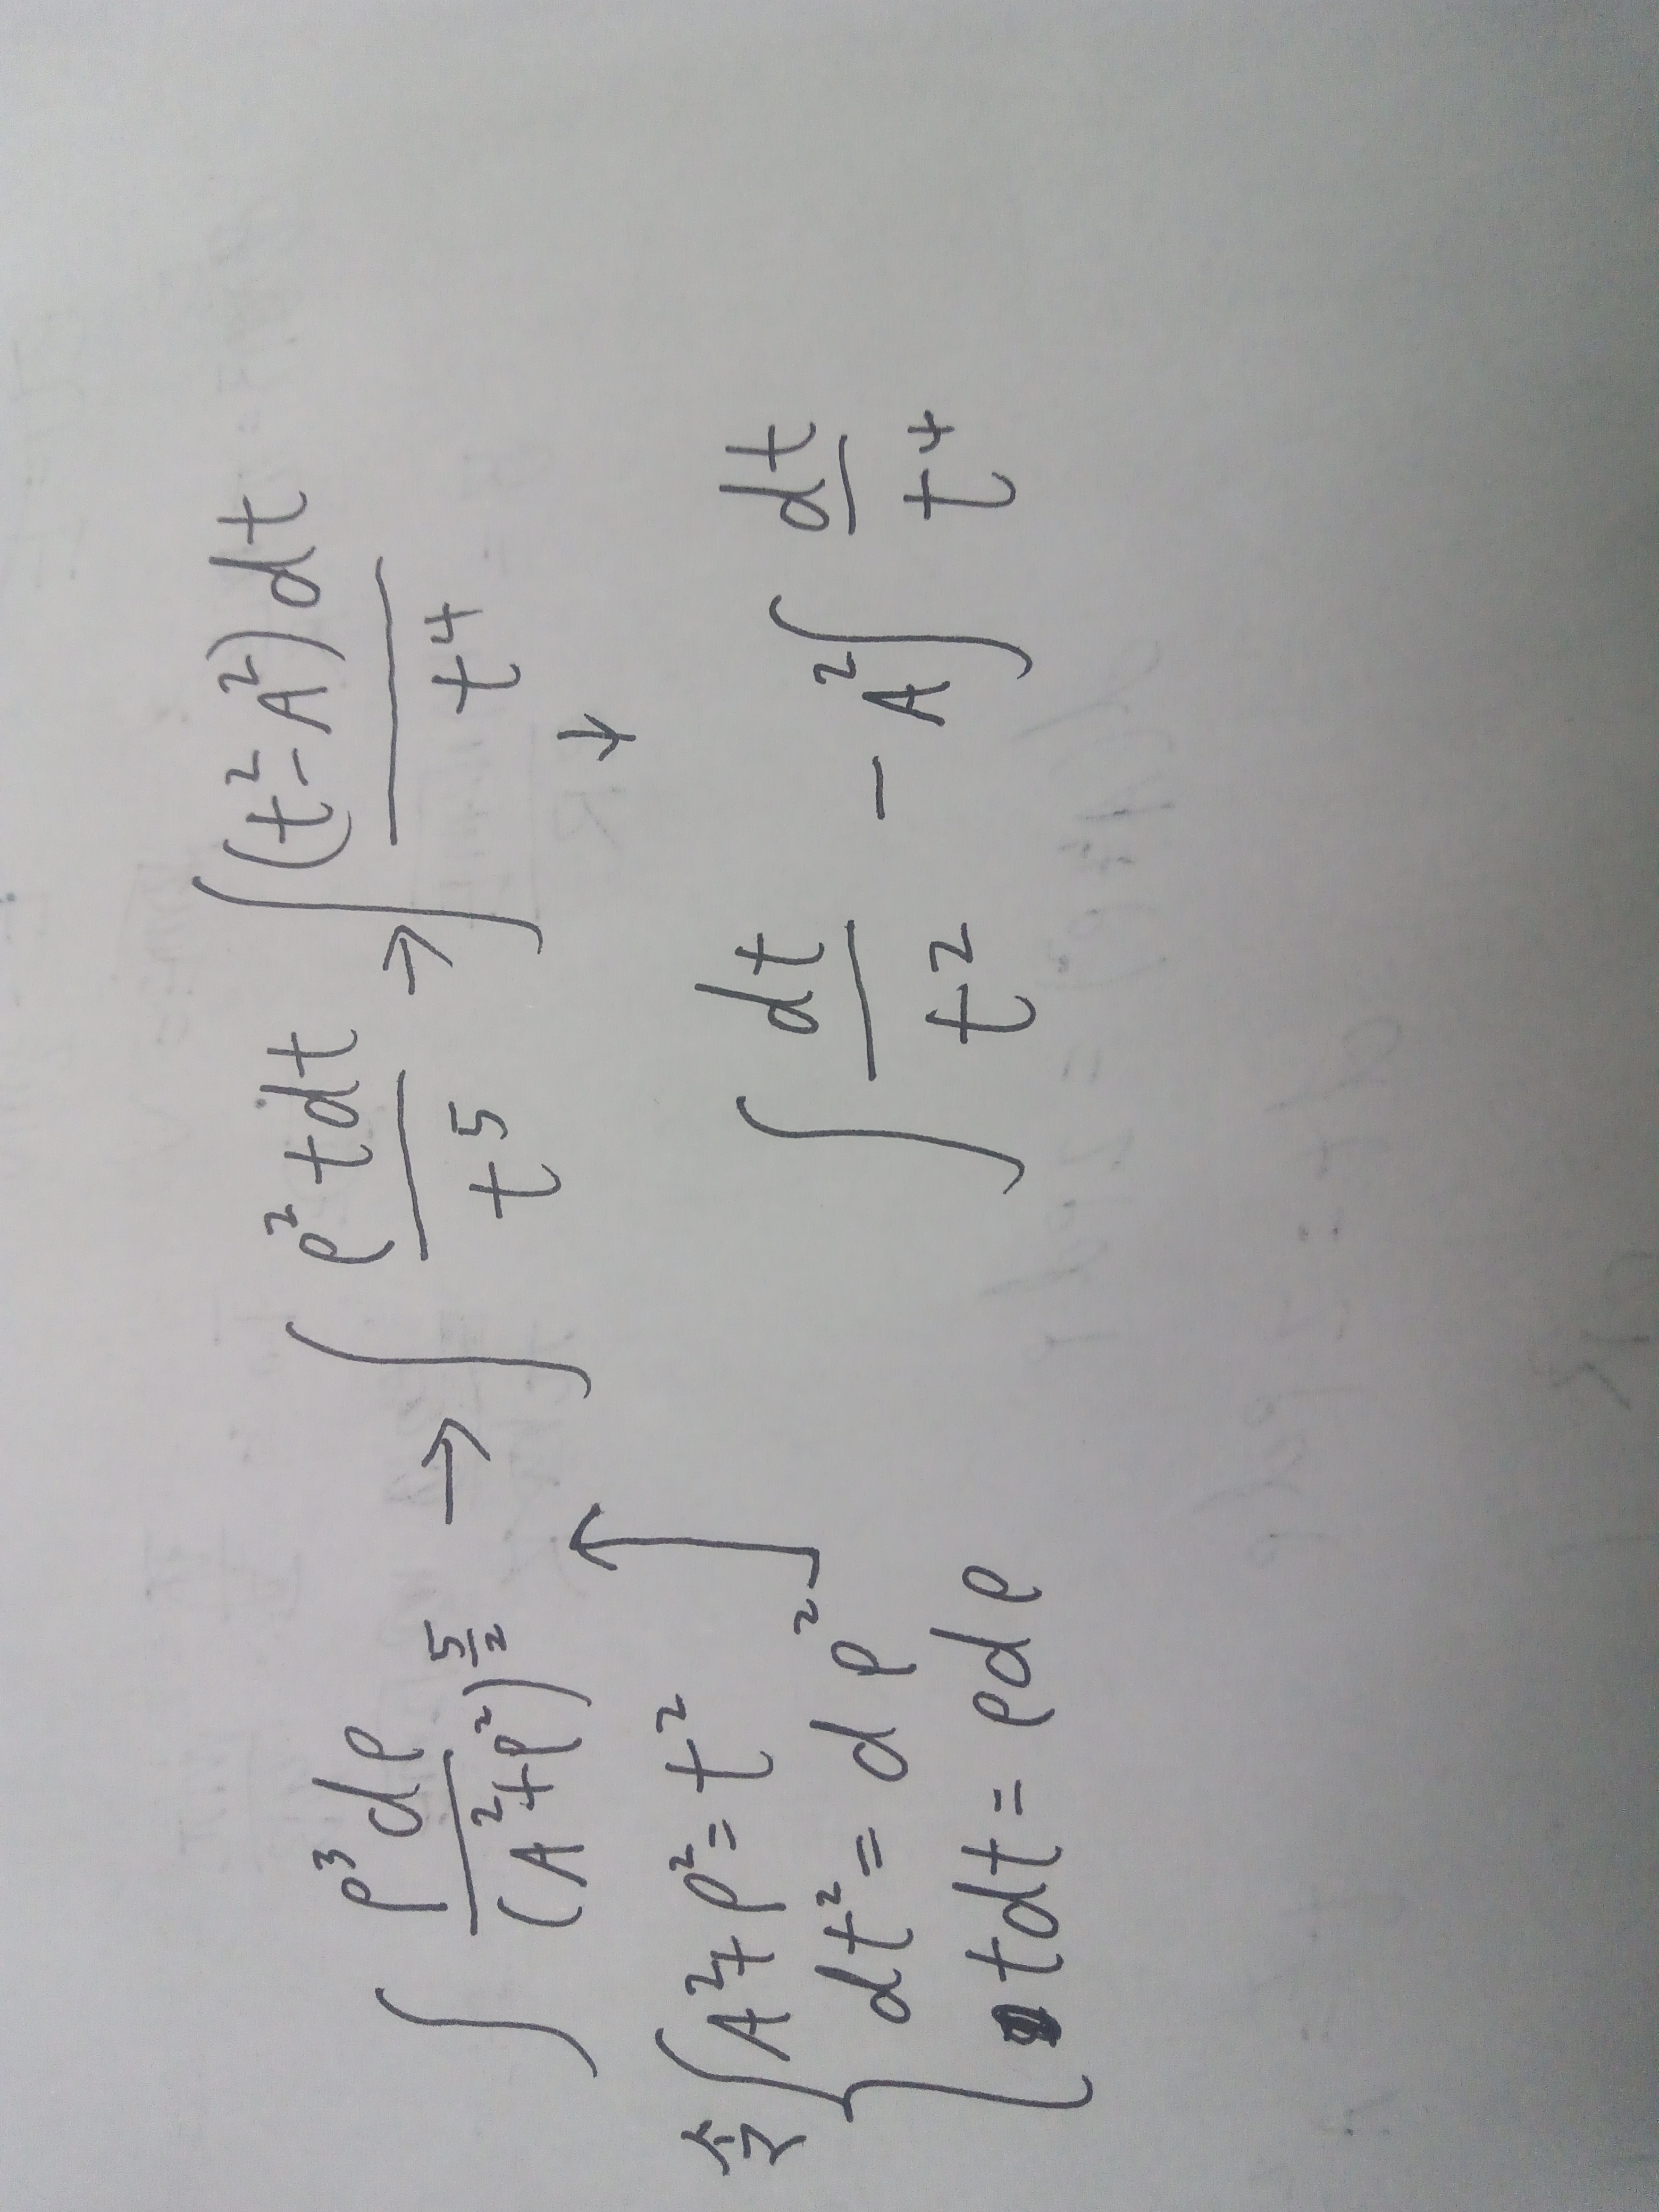 ∫ ρ³dρ / (A²+ρ²)^(5/2) → ∫ ρ²tdt / t⁵ → ∫ (t²-A²)dt / t⁴
↓
令 { A²+ρ²=t²
dt²=dρ²
tdt=ρdρ
∫ dt / t² - A² ∫ dt / t⁴